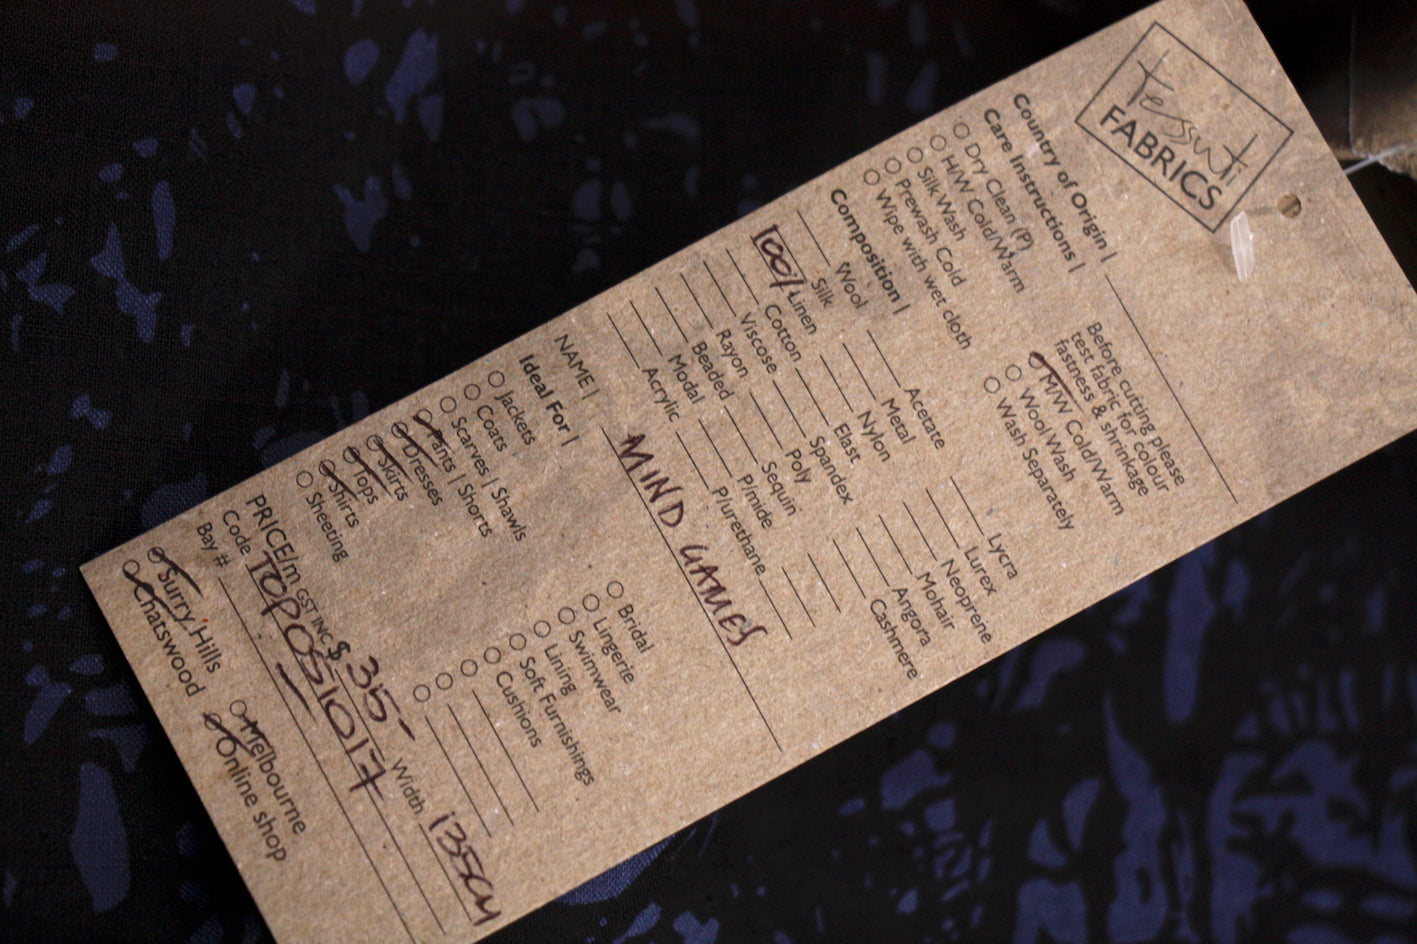 tessuti
FABRICS
Country of Origin |
Care Instructions |
Dry Clean (P)
H/W Cold/Warm
Silk Wash
Prewash Cold
Wipe with wet cloth
Before cutting please
test fabric for colour
fastness & shrinkage
M/W Cold/Warm
Wool Wash
Wash Separately
Composition |
Wool Acetate Lycra
Silk Metal Lurex
100% Linen Nylon Neoprene
Cotton Elast Mohair
Viscose Spandex Angora
Rayon Poly Cashmere
Beaded Sequin
Modal P/mide
Acrylic P/urethane
NAME | MIND GAMES
Ideal For |
Jackets Bridal
Coats Lingerie
Scarves | Shawls Swimwear
Pants | Shorts Lining
Dresses Soft Furnishings
Skirts Cushions
Tops
Shirts
Sheeting
PRICE/m GST INC $ 35- Width 135cm
Code TOPOS1017
Bay #
Surry Hills Melbourne
Chatswood Online shop